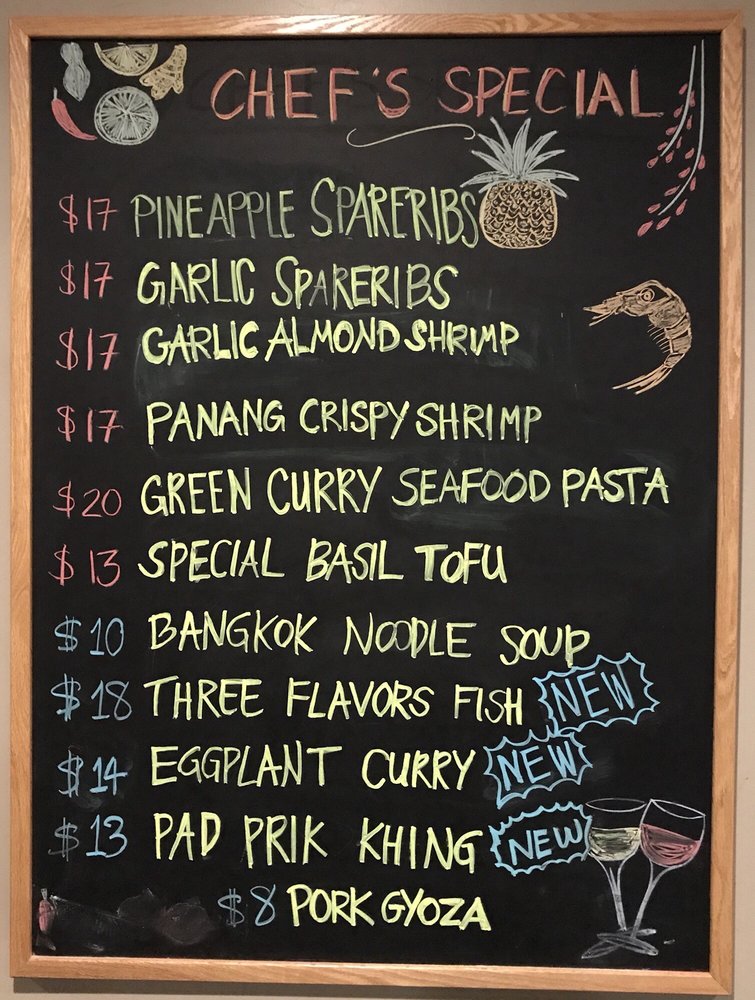 CHEF'S SPECIAL
$17 PINEAPPLE SPARERIBS
$17 GARLIC SPARERIBS
$17 GARLIC ALMOND SHRIMP
$17 PANANG CRISPY SHRIMP
$20 GREEN CURRY SEAFOOD PASTA
$13 SPECIAL BASIL TOFU
$10 BANGKOK NOODLE SOUP
$18 THREE FLAVORS FISH NEW
$14 EGGPLANT CURRY NEW
$13 PAD PRIK KHING NEW
$8 PORK GYOZA